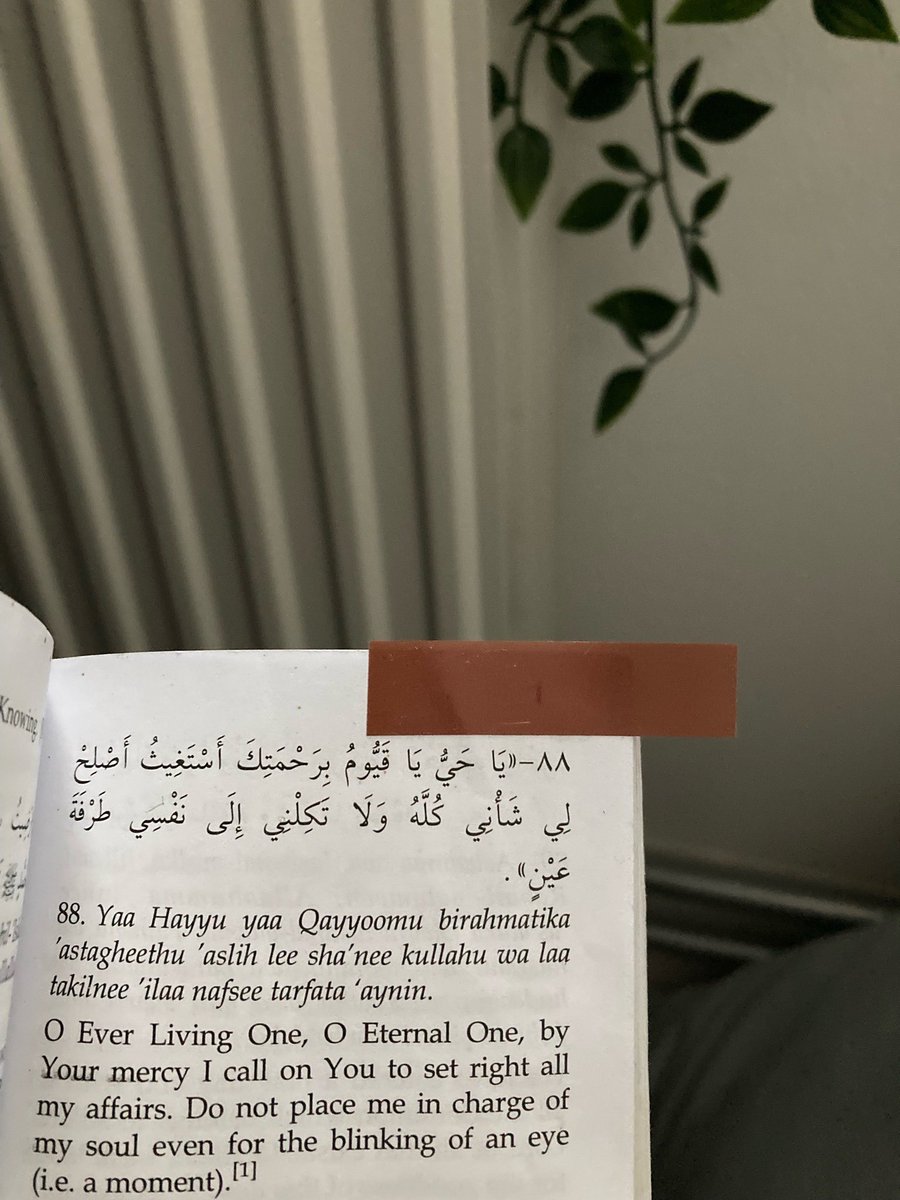 Knowing,
٨٨-«يَا حَيُّ يَا قَيُّومُ بِرَحْمَتِكَ أَسْتَغِيثُ أَصْلِحْ
لِي شَأْنِي كُلَّهُ وَلَا تَكِلْنِي إِلَى نَفْسِي طَرْفَةَ
عَيْنٍ».
88. Yaa Hayyu yaa Qayyoomu birahmatika
'astagheethu 'aslih lee sha'nee kullahu wa laa
takilnee 'ilaa nafsee tarfata 'aynin.
O Ever Living One, O Eternal One, by
Your mercy I call on You to set right all
my affairs. Do not place me in charge of
my soul even for the blinking of an eye
(i.e. a moment).[1]